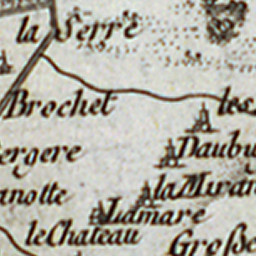 la Serre
Brochet les
ergere Daubu
anotte la Miran
Lamare
le Chateau Große